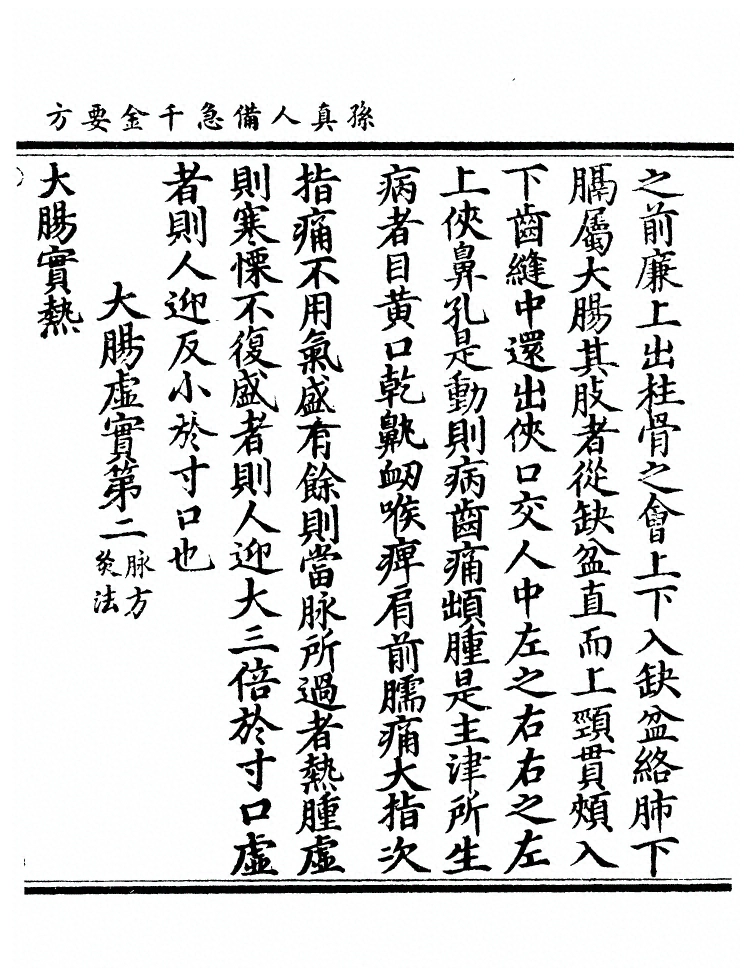 孫真人備急千金要方
之前廉上出柱骨之會上下入缺盆絡肺下
膈屬大腸其肢者從缺盆直而上頸貫頰入
下齒縫中還出俠口交人中左之右右之左
上俠鼻孔是動則病齒痛䪼腫是主津所生
病者目黃口乾鼽衂喉痺肩前臑痛大指次
指痛不用氣盛有餘則當脉所過者熱腫虛
則寒慄不復盛者則人迎大三倍於寸口虛
者則人迎反小於寸口也
大腸虛實第二脉方
灸法
大腸實熱